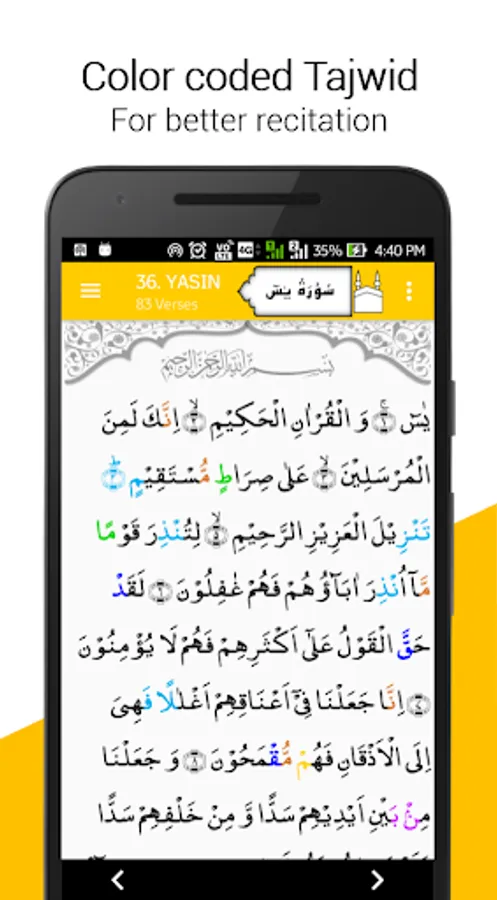 Color coded Tajwid
For better recitation
4G 35% 4:40 PM
36. YASIN
83 Verses
سُوْرَةُ يٰسٓ
بِسْمِ اللّٰهِ الرَّحْمٰنِ الرَّحِيْمِ
يٰسٓ ۚ ﴿١﴾ وَ الْقُرْاٰنِ الْحَكِيْمِ ۙ ﴿٢﴾ اِنَّكَ لَمِنَ
الْمُرْسَلِيْنَ ۙ ﴿٣﴾ عَلٰى صِرَاطٍ مُّسْتَقِيْمٍ ؕ ﴿٤﴾
تَنْزِيْلَ الْعَزِيْزِ الرَّحِيْمِ ۙ ﴿٥﴾ لِتُنْذِرَ قَوْمًا
مَّاۤ اُنْذِرَ اٰبَآؤُهُمْ فَهُمْ غٰفِلُوْنَ ﴿٦﴾ لَقَدْ
حَقَّ الْقَوْلُ عَلٰٓى اَكْثَرِهِمْ فَهُمْ لَا يُؤْمِنُوْنَ
﴿٧﴾ اِنَّا جَعَلْنَا فِيْۤ اَعْنَاقِهِمْ اَغْلٰلًا فَهِيَ
اِلَى الْاَذْقَانِ فَهُمْ مُّقْمَحُوْنَ ﴿٨﴾ وَ جَعَلْنَا
مِنْۢ بَيْنِ اَيْدِيْهِمْ سَدًّا وَّ مِنْ خَلْفِهِمْ سَدًّا